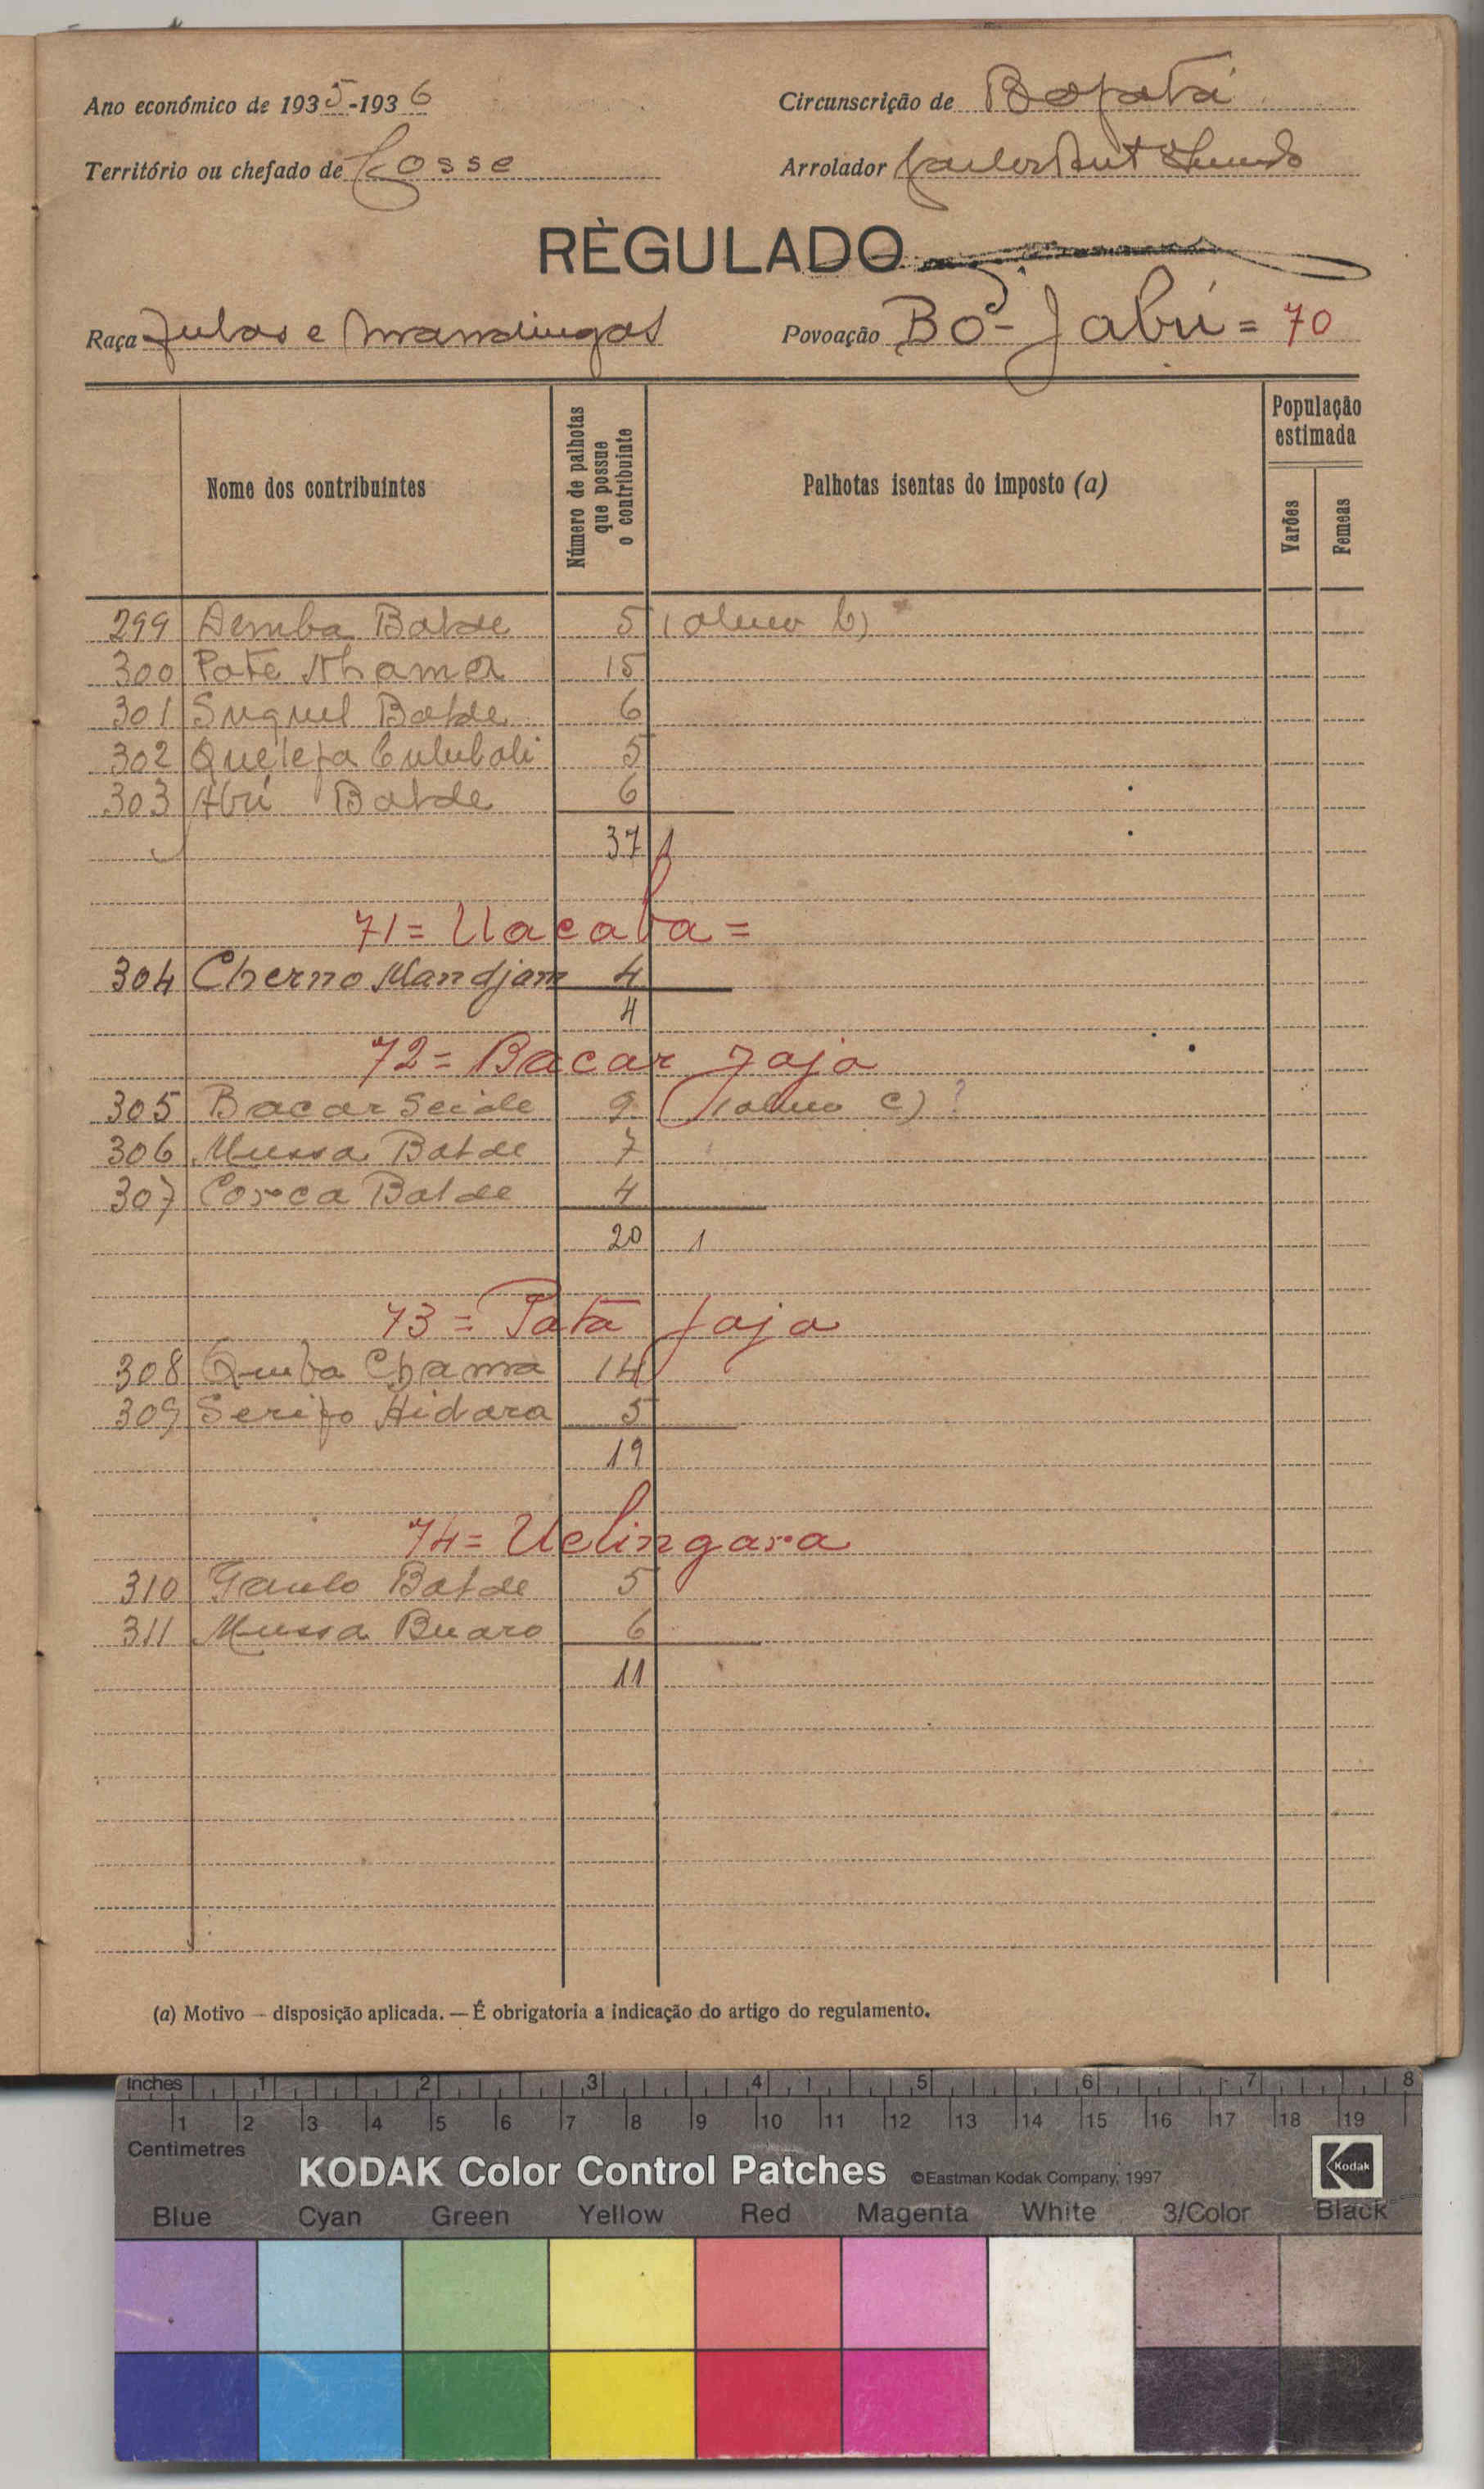 Ano económico de 1935-1936
Circunscrição de Bafatá
Território ou chefado de Cosse
Arrolador Carlos Ant
RÈGULADO
Raça Fulas e Mandingas
Povoação Bô-Jabú = 70
Nome dos contribuintes
Número de palhotas que possue o contribuinte
Palhotas isentas do imposto (a)
População estimada
Varões
Femeas
299 Demba Balde 5 1 b)
300 Pate 15
301 Balde 6
302 Quelefa Culubali 5
303 Abú Balde 6
37 1
71 = Uacaba =
304 Cherno Mandjam 4
4
72 = Bacar Jaja
305 Bacar Seide 9 c) ?
306 Mussa Balde 7
307 Corca Balde 4
20 1
73 = Patá Jaja
308 Queba Chama 14
309 Serifo Hidara 5
19
74 = Uelingara
310 Balde 5
311 Mussa Buaro 6
11
(a) Motivo — disposição aplicada. — É obrigatoria a indicação do artigo do regulamento.
inches 1 2 3 4 5 6 7 8
1 2 3 4 5 6 7 8 9 10 11 12 13 14 15 16 17 18 19
Centimetres
KODAK Color Control Patches ©Eastman Kodak Company, 1997 Kodak
Blue Cyan Green Yellow Red Magenta White 3/Color Black